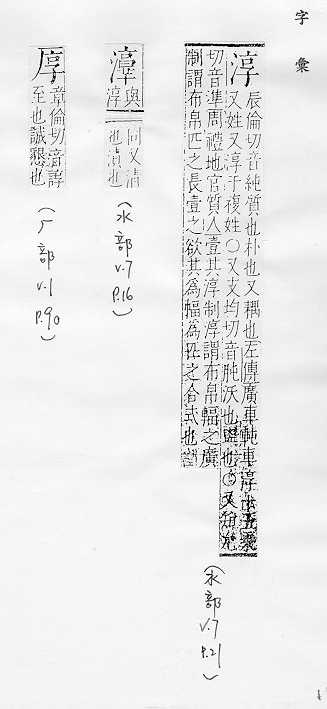 字彙
淳
辰倫切音純質也朴也又耦也左傳廣車軘車淳十五乘
又姓又淳于複姓○又支均切音肫沃也
切音準周禮地官質人壹其淳制淳謂布帛幅之廣
制謂布帛匹之長壹之欲其為幅為匹之合式也
(水部 v.7 P.21)
與淳
同又清
也漬也
(水部 v.7 P.16)
章倫切音諄
至也誠懇也
(厂部 v.1 P.90)